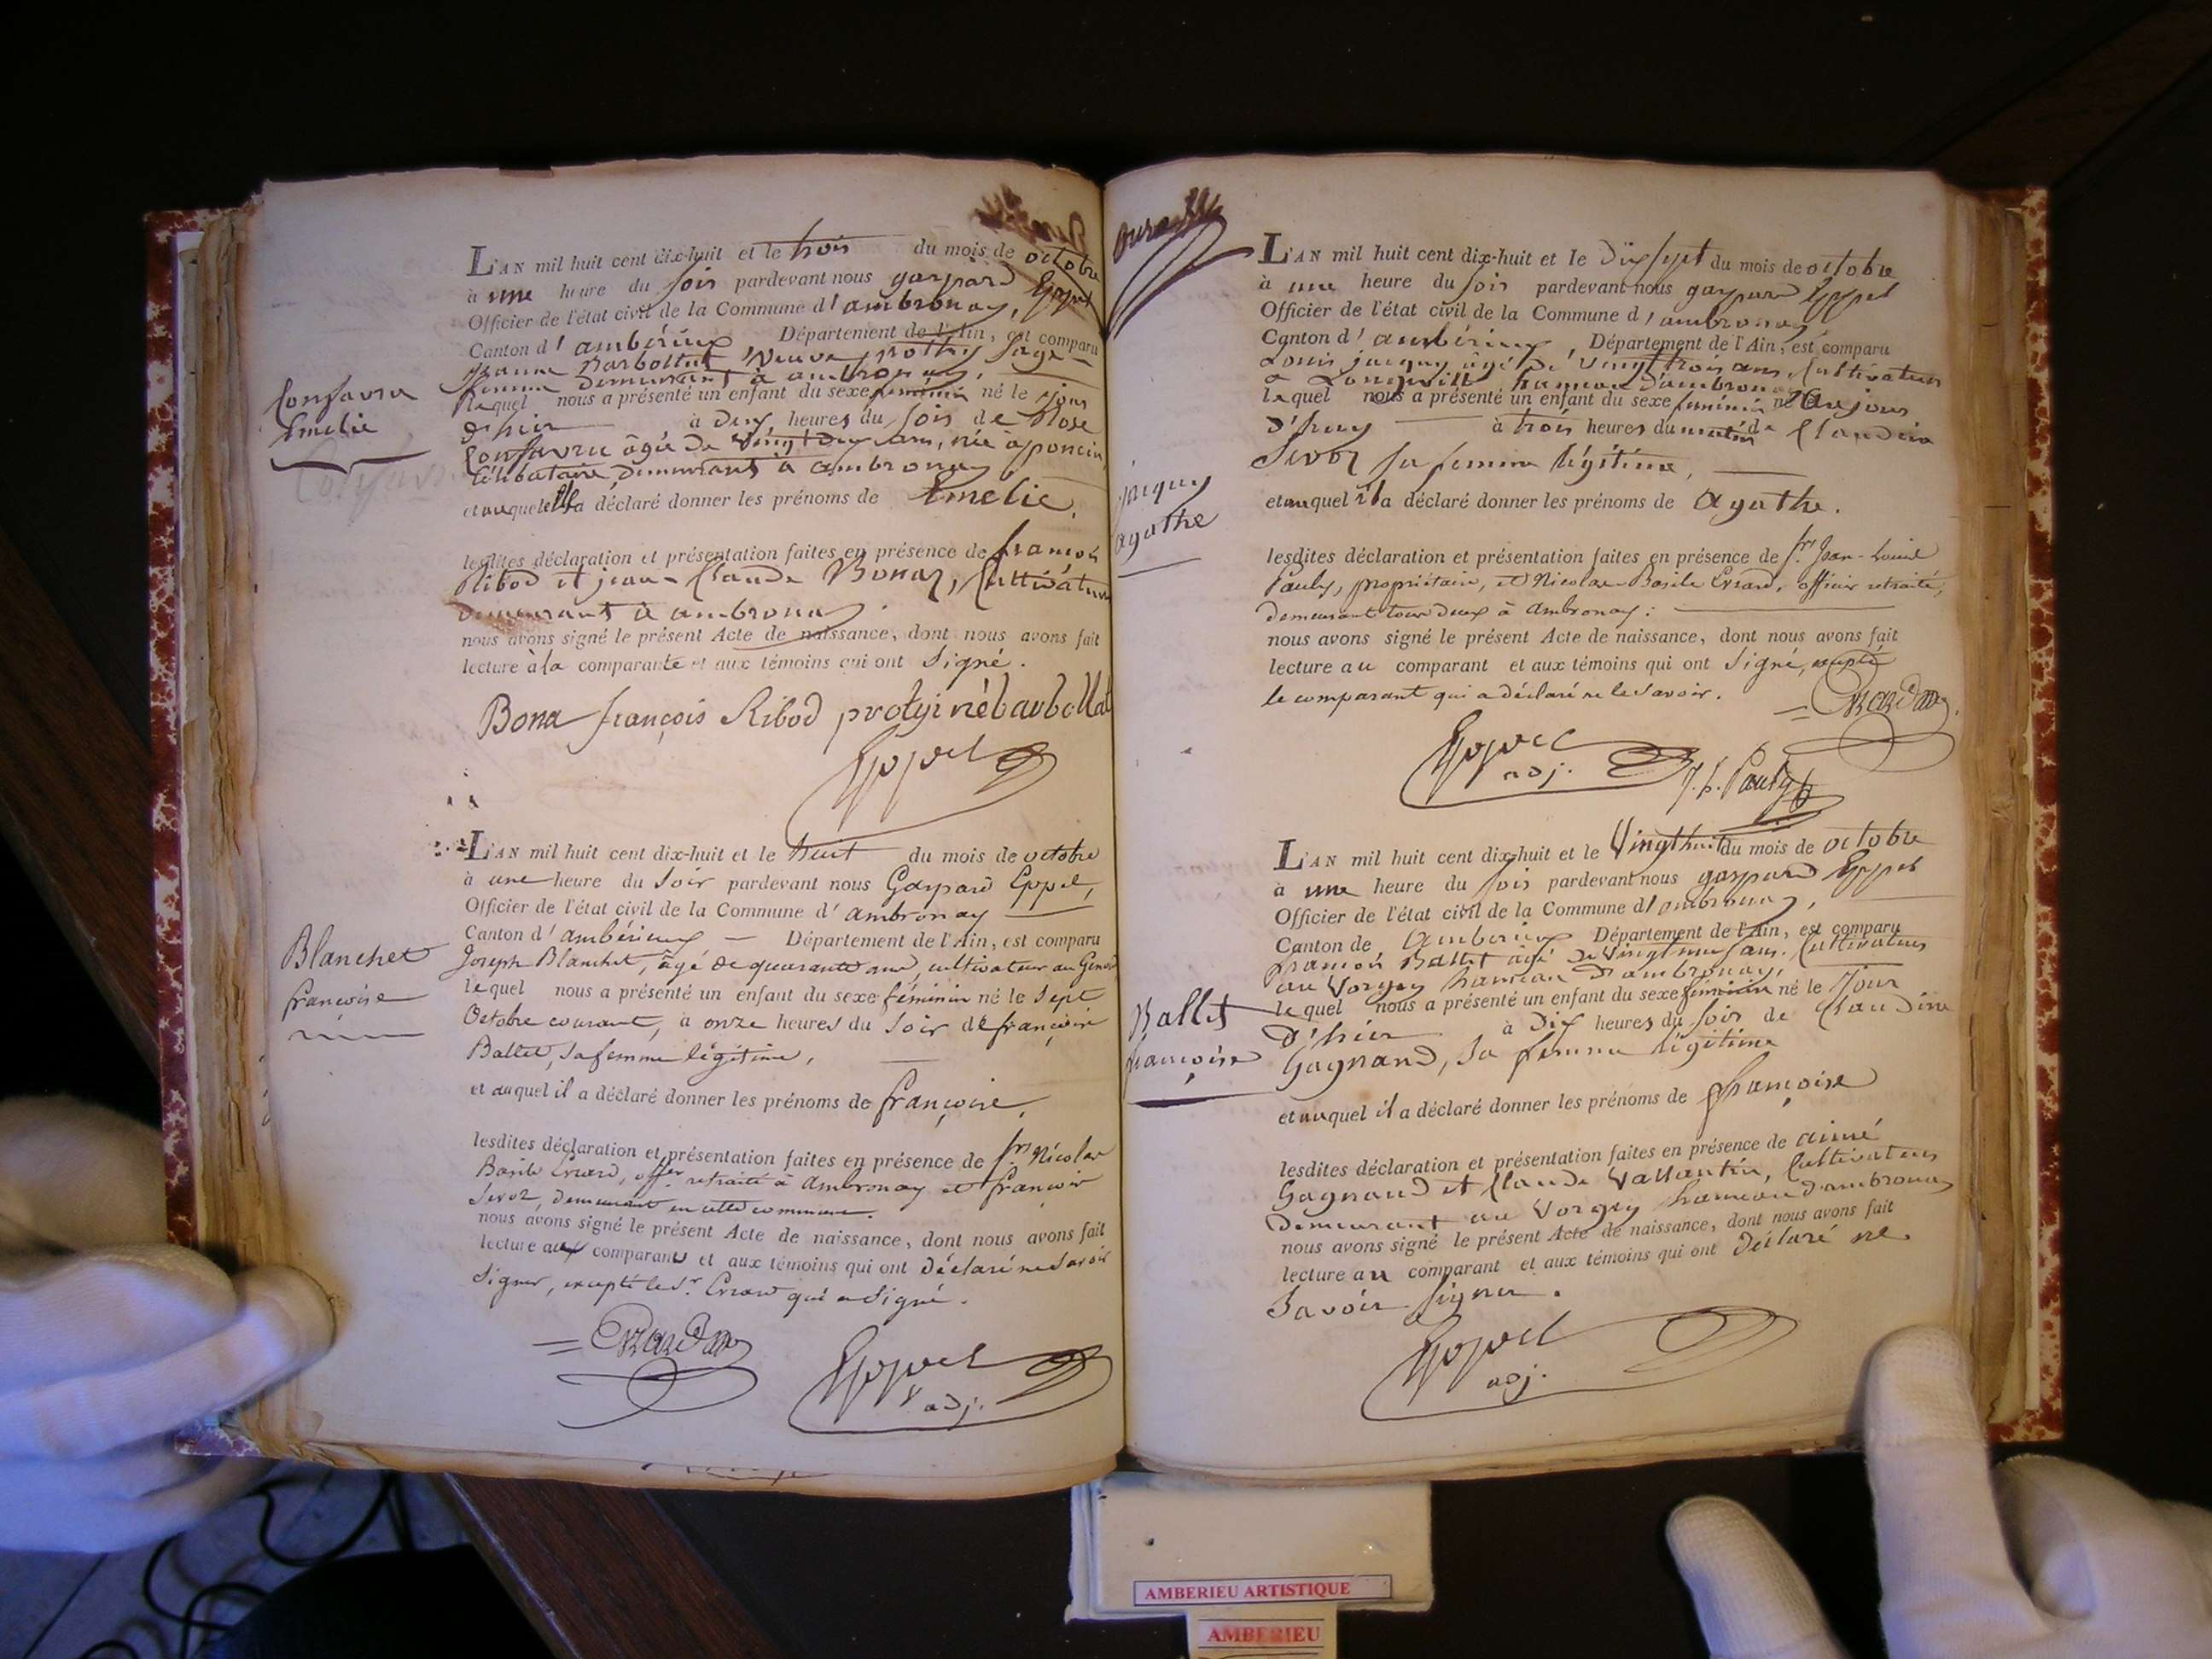 L'AN mil huit cent dix-huit et le trois du mois de octobre
à une heure du soir pardevant nous gaspard Eppel
Officier de l'état civil de la Commune d'ambronay,
Canton d'ambérieux Département de l'Ain, est comparu
jeanne Barbollat Veuve prothy sage-
femme demeurant à ambronay,
laquel nous a présenté un enfant du sexe féminin né le jour
d'hier à deux heures du soir de Rose
Confavre âgée de vingt deux ans, née à poncin,
célibataire demeurant à ambronay
et auquel elle a déclaré donner les prénoms de Emelie.
lesdites déclaration et présentation faites en présence de françois
Ribod et jean-Claude Bonaz, Cultivateurs
demeurant à ambronay.
nous avons signé le présent Acte de naissance, dont nous avons fait
lecture à la comparante et aux témoins qui ont signé.
Bona françois Ribod protyi né barbollat
Eppel
Confavre
Emelie
L'AN mil huit cent dix-huit et le huit du mois de octobre
à une heure du soir pardevant nous Gaspard Eppel,
Officier de l'état civil de la Commune d'ambronay
Canton d'ambérieux Département de l'Ain, est comparu
Joseph Blanchet, âgé de quarante ans, cultivateur au
lequel nous a présenté un enfant du sexe féminin né le sept
Octobre courant, à onze heures du soir de françoise
Ballet, sa femme légitime,
et auquel il a déclaré donner les prénoms de françoise,
lesdites déclaration et présentation faites en présence de Nicolas
Basile Erard, offer. retraité à Ambronay et françois
Sevoz, demeurant en cette commune.
nous avons signé le présent Acte de naissance, dont nous avons fait
lecture aux comparant et aux témoins qui ont déclaré ne savoir
signer, excepté le Sr. Erard qui a signé.
Eppel
adj.
Blanchet
françoise
L'AN mil huit cent dix-huit et le dix sept du mois de octobre
à une heure du soir pardevant nous gaspard Eppel
Officier de l'état civil de la Commune d'ambronay
Canton d'ambérieux, Département de l'Ain, est comparu
Louis jacquy âgé de vingt trois ans, Cultivateur
à Longeville hameau d'ambronay
lequel nous a présenté un enfant du sexe féminin né jour
d'huy à trois heures du matin de Claudine
Sevoz sa femme légitime,
et auquel il a déclaré donner les prénoms de Agathe.
lesdites déclaration et présentation faites en présence de Jean-Louis
Pauly, propriétaire, et Nicolas-Basile Erard, officier retraité,
demeurant tous deux à Ambronay:
nous avons signé le présent Acte de naissance, dont nous avons fait
lecture au comparant et aux témoins qui ont signé, excepté
le comparant qui a déclaré ne le savoir.
Eppel
adj.
J. L. Pauly
jacquy
agathe
L'AN mil huit cent dix-huit et le Vingt huit du mois de octobre
à une heure du soir pardevant nous gaspard Eppel
Officier de l'état civil de la Commune d'ambronay,
Canton de Amberieux Département de l'Ain, est comparu
francois Ballet âgé de Vingt neuf ans, Cultivateur
au Vorgey hameau d'ambronay,
lequel nous a présenté un enfant du sexe féminin né le Jour
d'hier à dix heures du soir de Claudine
Gagnand, sa femme légitime
et auquel il a déclaré donner les prénoms de françoise
lesdites déclaration et présentation faites en présence de aimé
Gagnand et Claude Vallantin, Cultivateurs
demeurant au Vorgey hameau d'ambronay
nous avons signé le présent Acte de naissance, dont nous avons fait
lecture au comparant et aux témoins qui ont déclaré ne
savoir signer.
Eppel
adj.
Ballet
françoise
AMBERIEU ARTISTIQUE
AMBERIEU